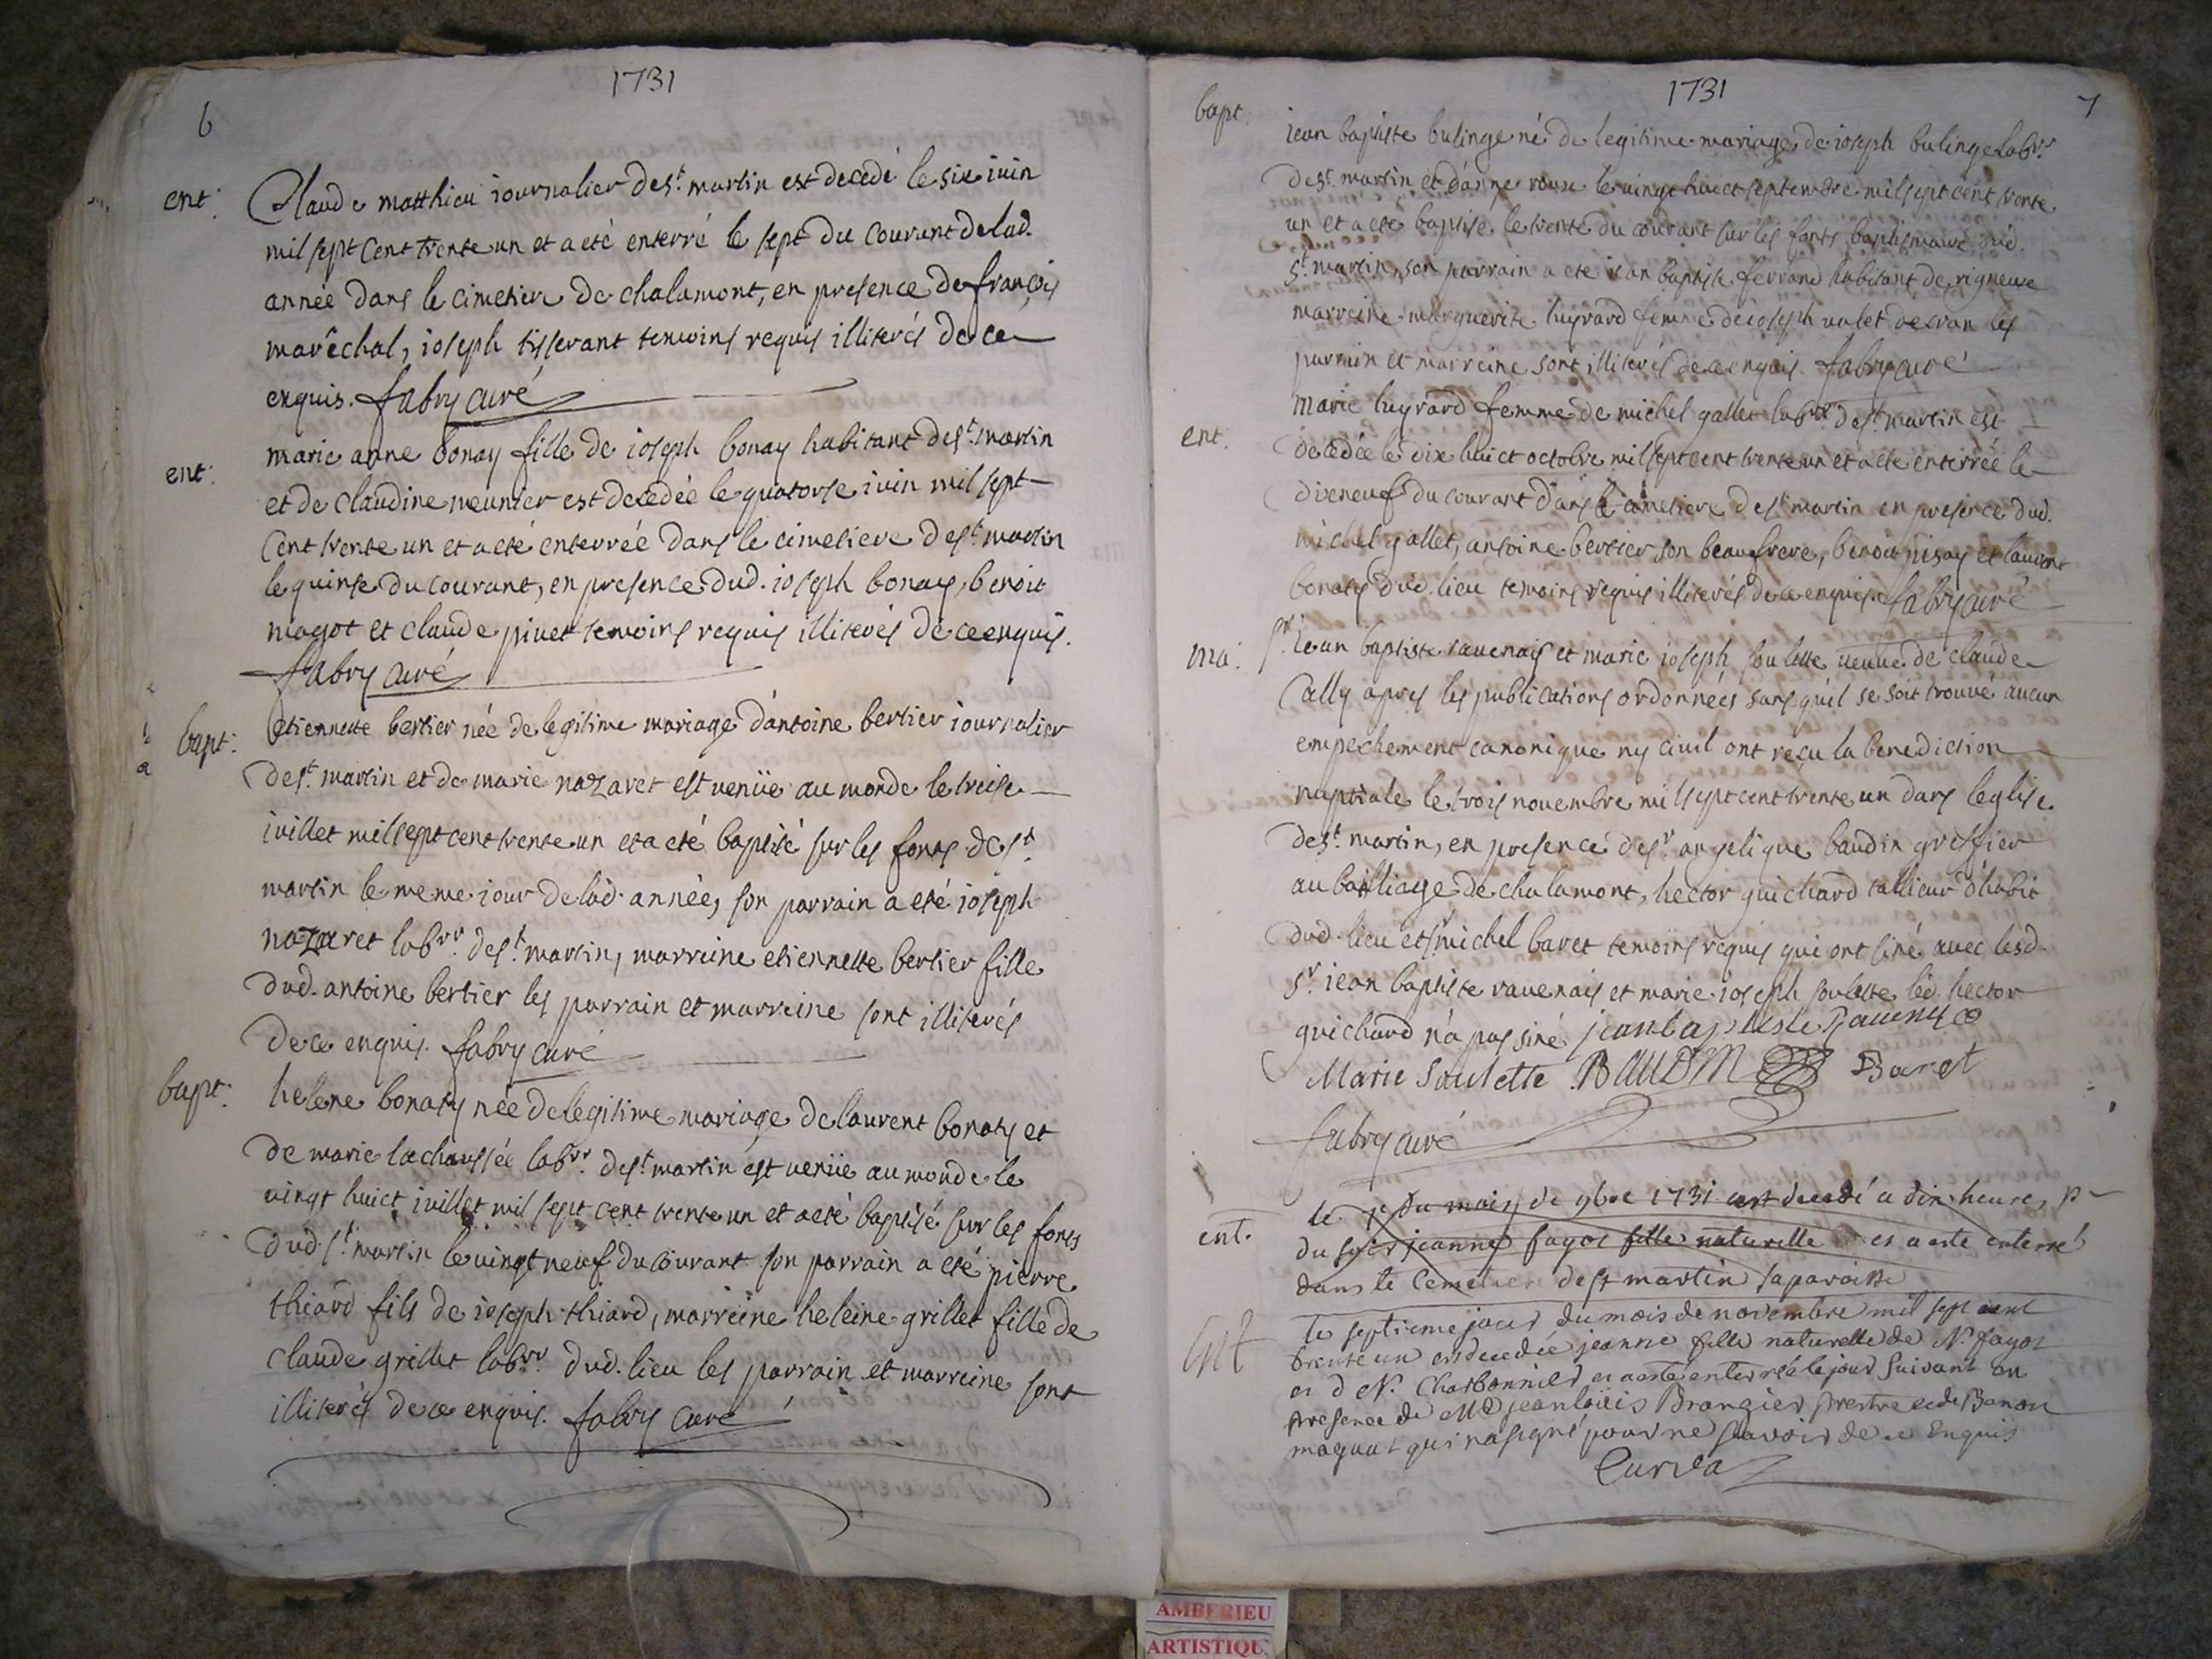 1731
6
ent.
Claude matthieu iournalier de st. martin est decedé le six iuin
mil sept cent trente un et a eté enterré le sept du courant de lad.
année dans le cimetiere de chalamont, en presence de françois
marêchal, ioseph tisserant temoins requis illiterés de ce
enquis. fabry curé
ent.
marie anne bonay fille de ioseph bonay habitant de st. martin
et de claudine meunier est decedée le quatorse iuin mil sept
cent trente un et a eté enterrée dans le cimetiere de st. martin
le quinse du courant, en presence dud. ioseph bonay, benoit
magot et claude pinet temoins requis illiterés de ce enquis.
fabry curé
bapt.
etiennette bertier née de legitime mariage d'antoine bertier iournalier
de st. martin et de marie nazaret est venüe au monde le treise
iuillet mil sept cent trente un et a eté baptisé sur les fonts de st.
martin le meme iour de lad. année, son parrain a eté ioseph
nazaret labrr. de st. martin, marreine etiennette bertier fille
dud. antoine bertier les parrain et marreine sont illiterés
de ce enquis. fabry curé
bapt.
helene bonaty née de legitime mariage de laurent bonaty et
de marie lachaussée labrr. de st. martin est venüe au monde le
vingt huict iuillet mil sept cent trente un et a eté baptisé sur les fonts
dud. st. martin le vingt neuf du courant son parrain a eté pierre
thiard fils de ioseph thiard, marreine heleine grillet fille de
claude grillet labrr. dud. lieu les parrain et marreine sont
illiterés de ce enquis. fabry curé
1731
7
bapt.
iean baptiste bulinge né de legitime mariage de ioseph bulinge labrr.
de st. martin et d'anne le vingt huict septembre mil sept cent trente
un et a eté baptisé le trente du courant sur les fonts baptismaux dud.
st. martin, son parrain a eté iean baptiste ferrand habitant de rigneux
marreine marguerite luyrard femme de ioseph valet de les
parrain et marreine sont illiterés de ce enquis. fabry curé
ent.
marie luyrard femme de michel gallet labrr. de st. martin est
decedée le dix huict octobre mil sept cent trente un et a eté enterrée le
dixneuf du courant dans le cimetiere de st. martin en presence dud.
michel gallet, antoine bertier son beaufrere, benoit pisay et laurent
bonaty dud. lieu temoins requis illiterés de ce enquis. fabry curé
ma.
sr. iean baptiste ravenais et marie ioseph soulette veuve de claude
cally apres les publications ordonnées sans qu'il se soit trouvé aucun
empechement canonique ny civil ont reçu la benediction
nuptiale le trois novembre mil sept cent trente un dans leglise
de st. martin, en presence de sr. angelique baudin greffier
au bailliage de chalamont, hector guichard tallieur d'habit
dud. lieu et sr. michel baret temoins requis qui ont siné avec lesd.
sr. iean baptiste ravenais et marie ioseph soulette led. hector
guichard n'a pas siné jean baptiste Ravenas
Marie Soulette BAUDIN Baret
fabry curé
ent.
le 7e du mois de 9bre 1731 est decedé a dix heures
du soir jeanne fayot fille naturelle et a este enterré
dans le cemetier de st martin sa paroisse
Ent
le septieme jour du mois de novembre mil sept cent
trente un est decedée jeanne fille naturelle de N. fayot
et de N. Charbonnier et a esté enterrée le jour suivant en
presence de Me jean loüis Brangier prestre et de Benon
maguat qui na signé pour ne sçavoir de ce Enquis
AMBERIEU
ARTISTIQU